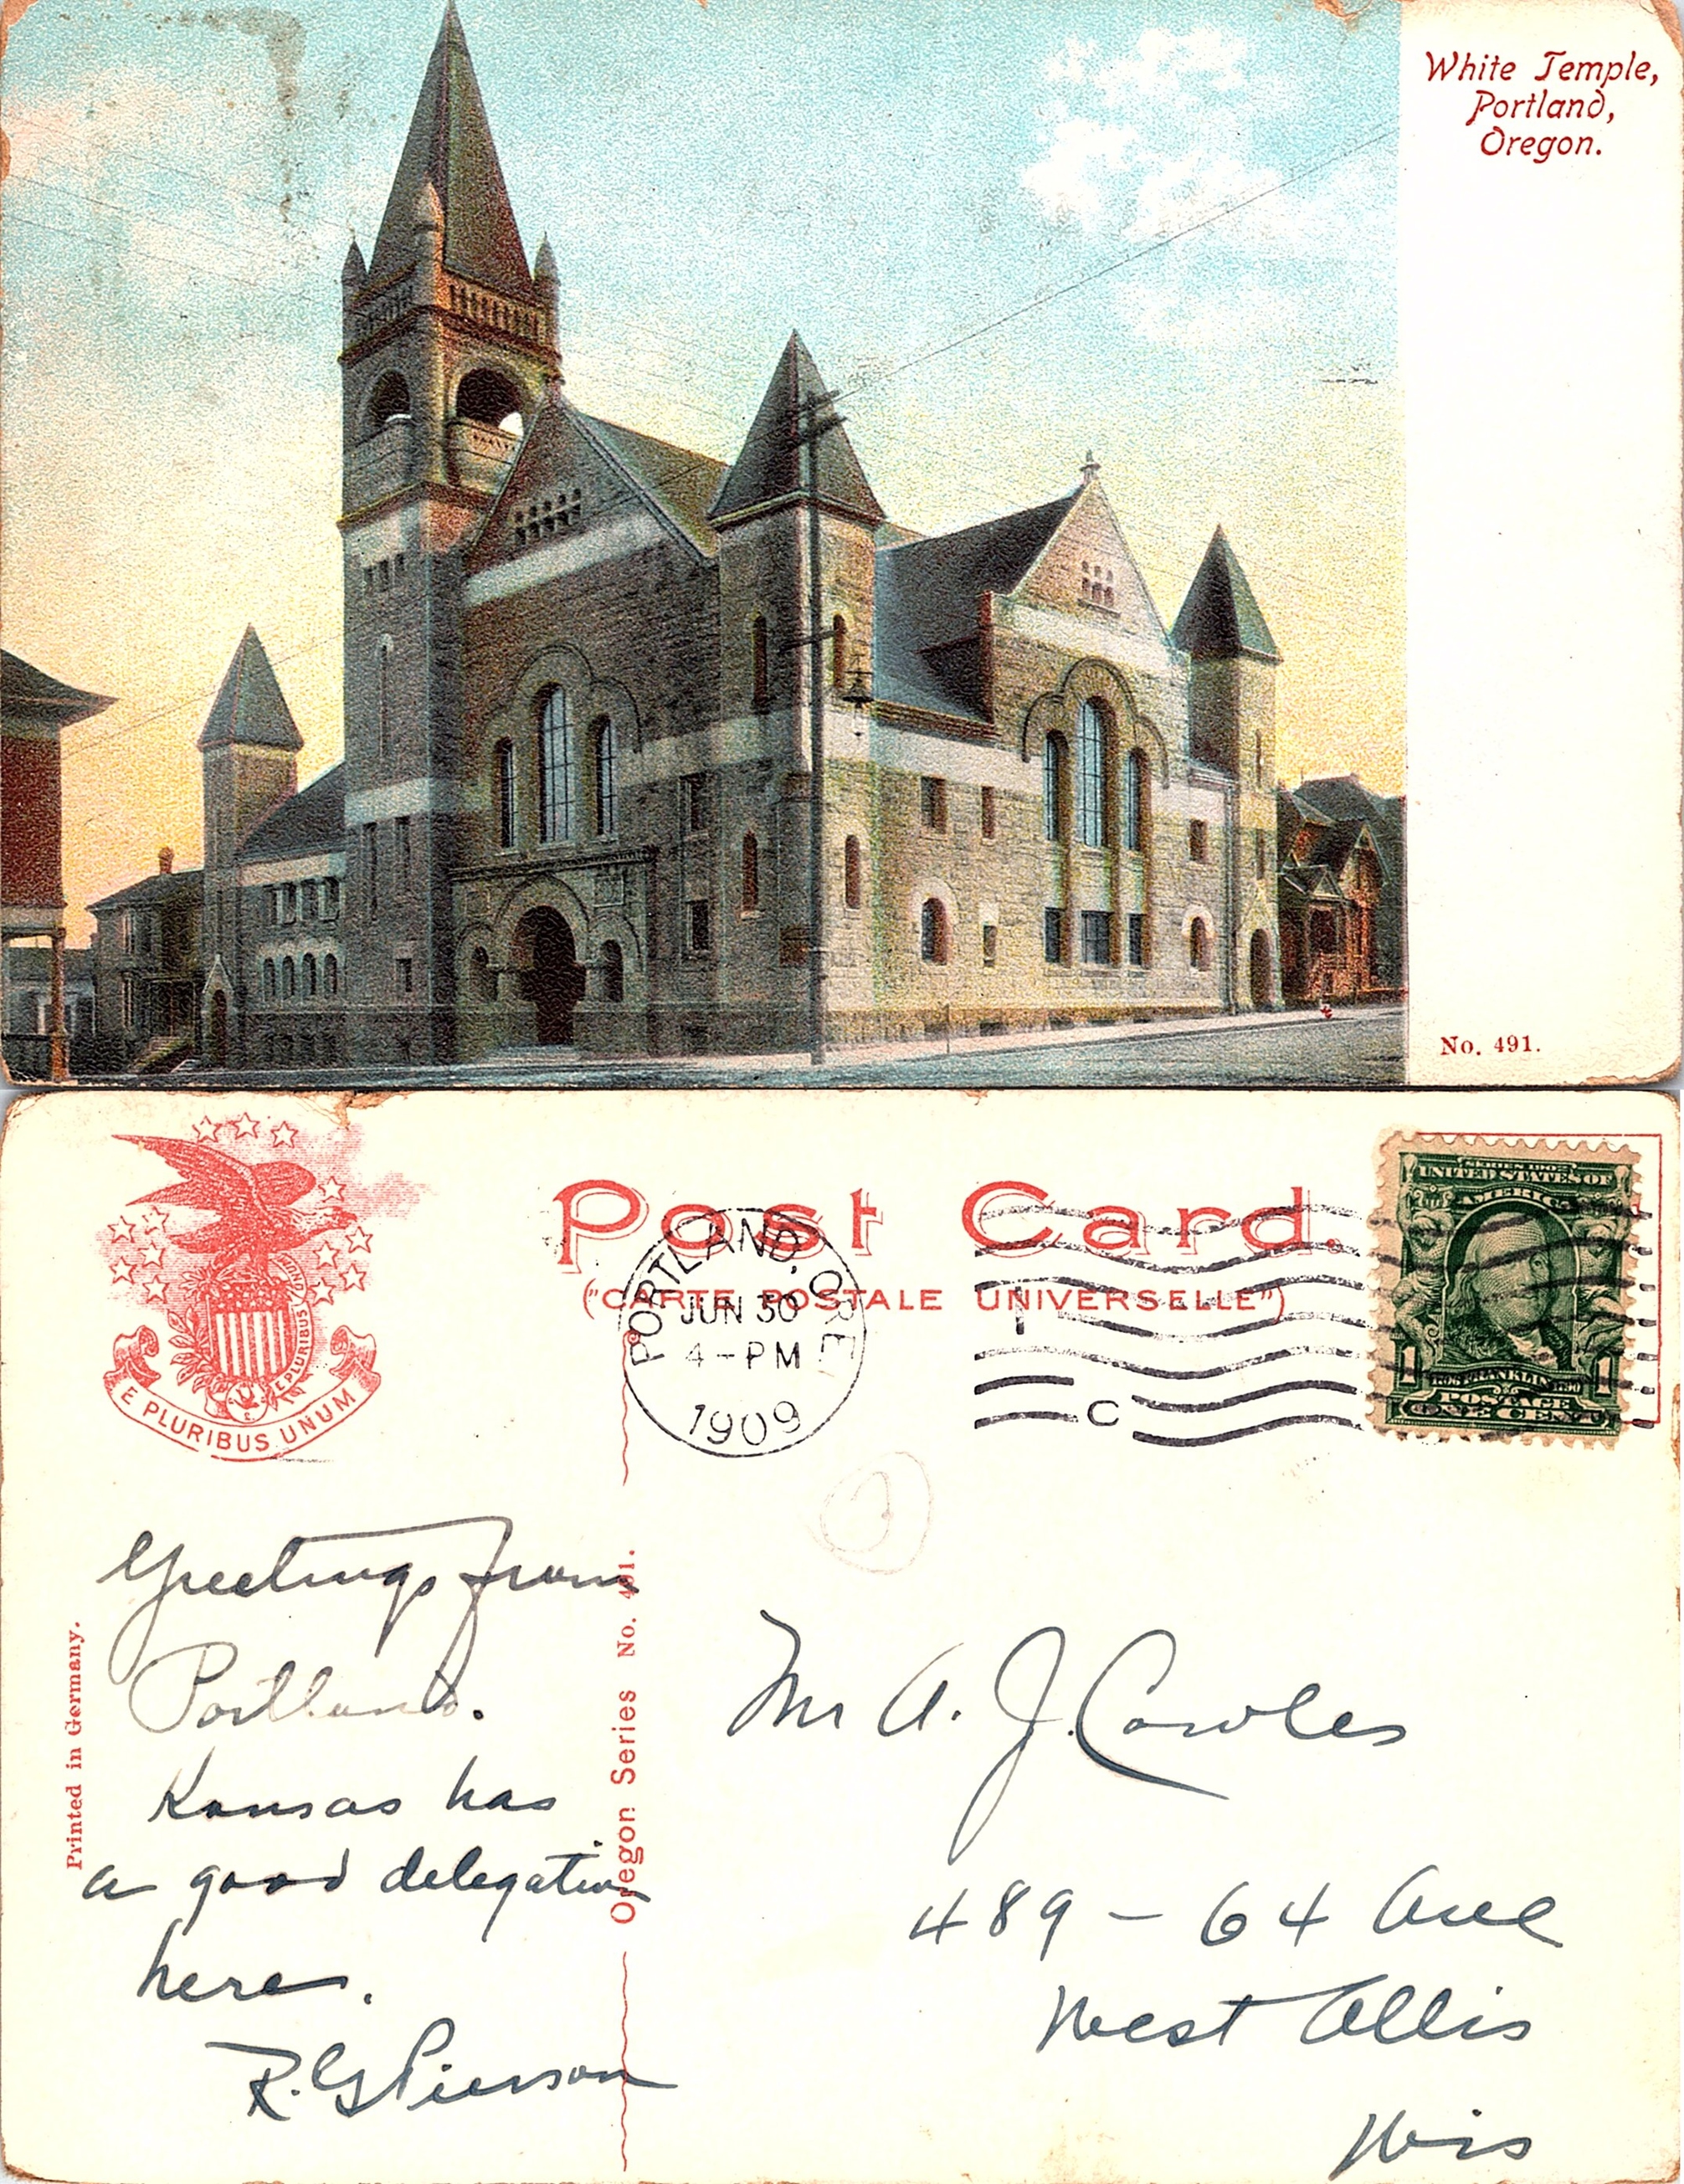 White Temple,
Portland,
Oregon.
No. 491.
Post Card.
("CARTE POSTALE UNIVERSELLE")
E PLURIBUS UNUM
E PLURIBUS UNUM
PORTLAND, ORE
JUN 30
4-PM
1909
C
SERIES 1902
UNITED STATES OF
AMERICA
1 BENJ. FRANKLIN 1
POSTAGE
ONE CENT
Printed in Germany.
Oregon Series No. 491.
Greetings from
Portland.
Kansas has
a good delegation
here.
R. G Pierson
Mr A. J. Cowles
489 - 64 Ave
West Allis
Wis